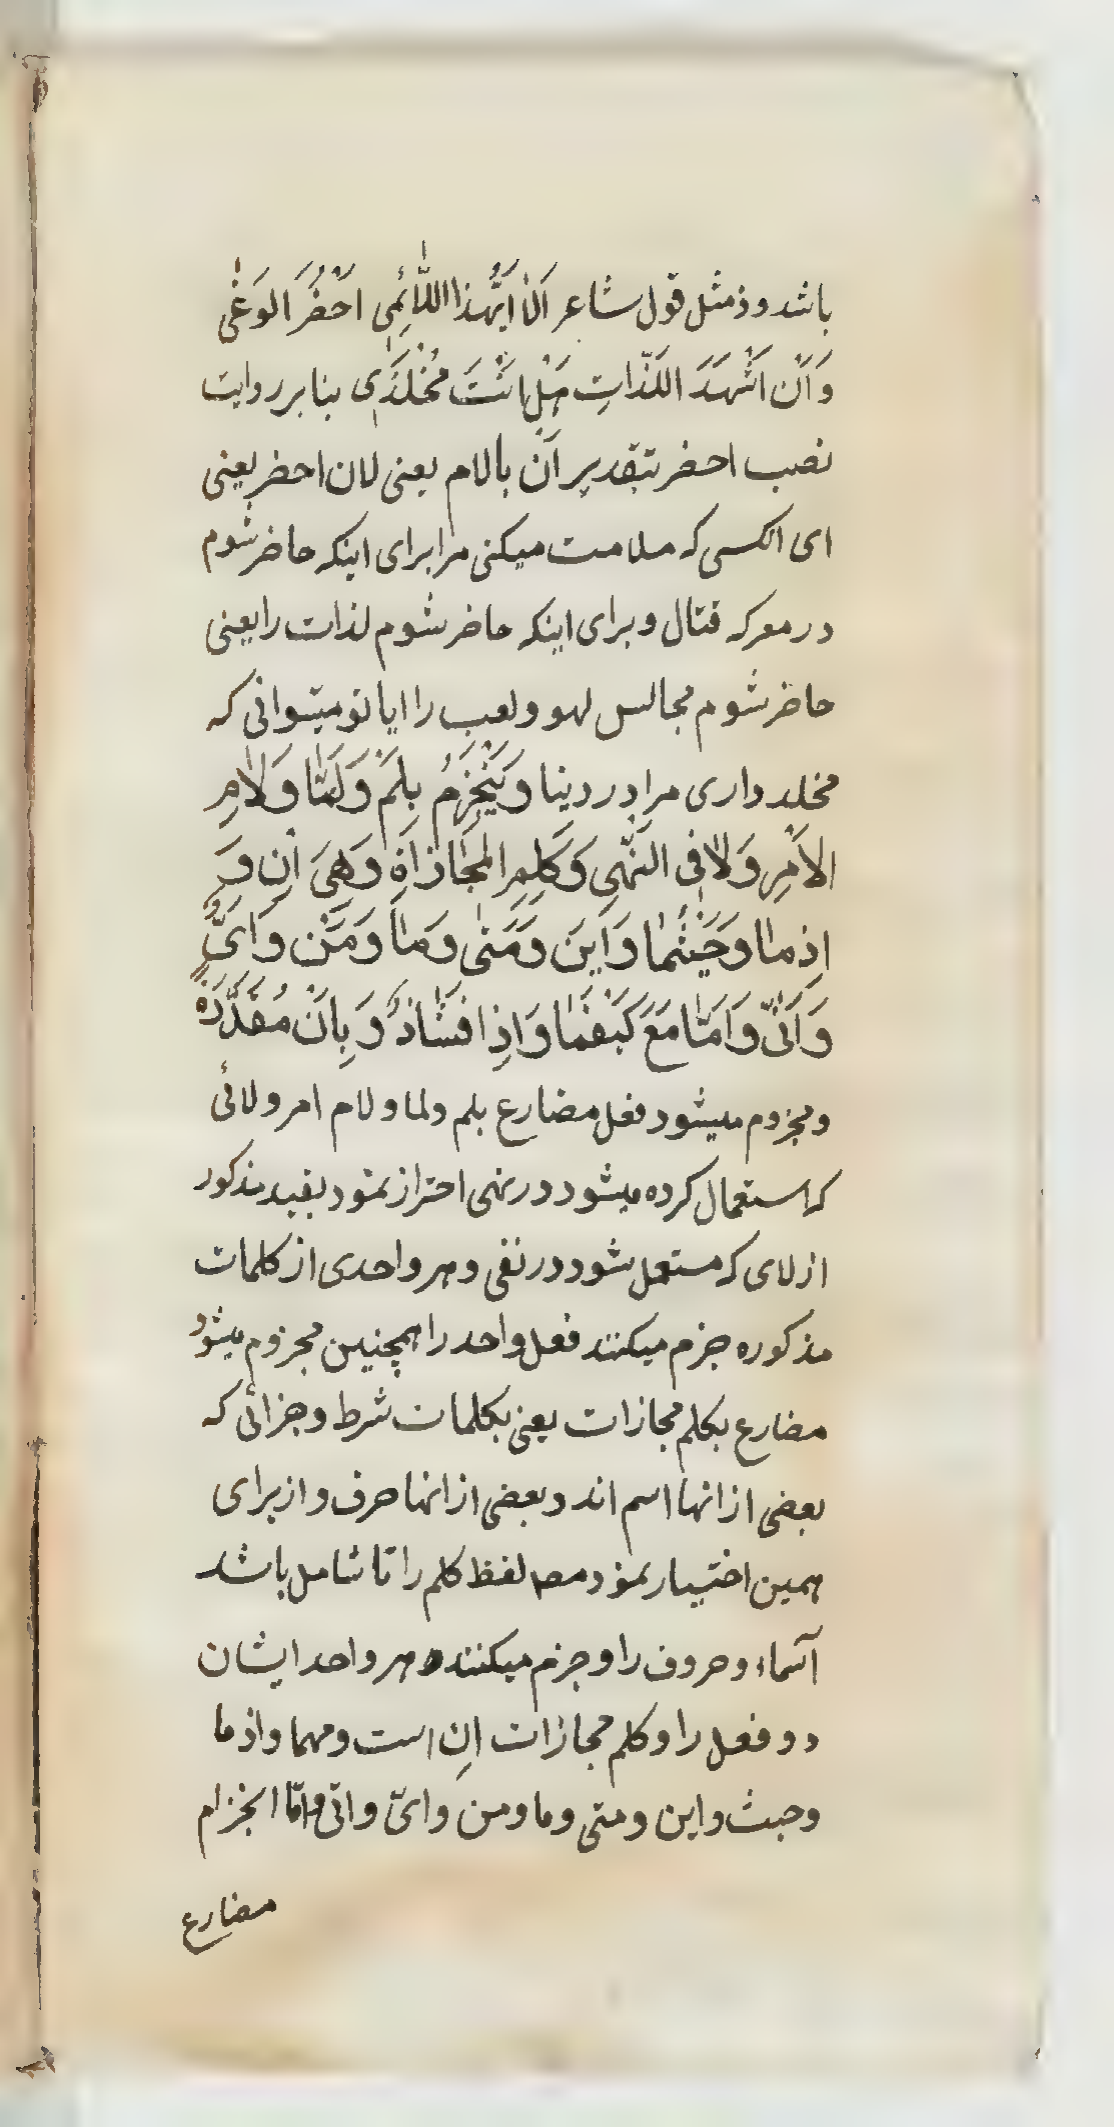 باشد و ذمثل قول شاعر اَلاٰ اَيُّهَذا اللّٰائِمِي اَحْضُرَ الوَغٰى
وَاَنْ اَشْهَدَ اللَذّاتِ هَلْ اَنْتَ مُخْلَدٖي بنا بر روایت
نصب احضر بتقدیر اَنْ بالام یعنی لان احضر یعنی
ای انکسی که ملامت میکنی مرا برای اینکه حاضر شوم
در معرکه قتال و برای اینکه حاضر شوم لذات را یعنی
حاضر شوم مجالس لهو و لعب را ایا تو میتوانی که
مخلد داری مرا در دینا وَيَنْجَزِمُ بِلَمْ وَلَمّٰا وَلاٰمِ
الاَمْرِ وَلاٰ فِى النَهْىِ وَ كَلِمِ المُجٰازاَةِ وَهِىَ اِنْ وَ
اِذمٰا وَحَيْثُمٰا وَاَيْنَ وَمَتٰى وَمٰا وَمَنْ وَاَىٌّ
وَاَنّٰى وَاَمّٰا مَعَ كَيْفَمٰا وَاِذٰا فَشٰاذٌ وَ بِاَنْ مُقَدَّرَةٍ
و مجزوم میشود فعل مضارع بلم و لما و لام امر و لائی
که استعمال کرده میشود در نهی احتراز نمود بقید مذکور
از لای که مستعمل شود در نفی و هر واحدی از کلمات
مذکوره جزم میکنند فعل واحد را همچنین مجزوم میشود
مضارع بکلم مجازات یعنی بکلمات شرط و جزائی که
بعضی از انها اسم اند و بعضی از انها حرف و از برای
همین اختیار نمود مصـ لفظ کلم را تا شامل باشد
آسماء و حروف را و جزم میکنند هر واحد ایشان
دو فعل را و کلم مجازات اِن است و مهما و اذ ما
و حیث و این و متی و ما و من و ایّ و انّی و امّا انجزام
مضارع